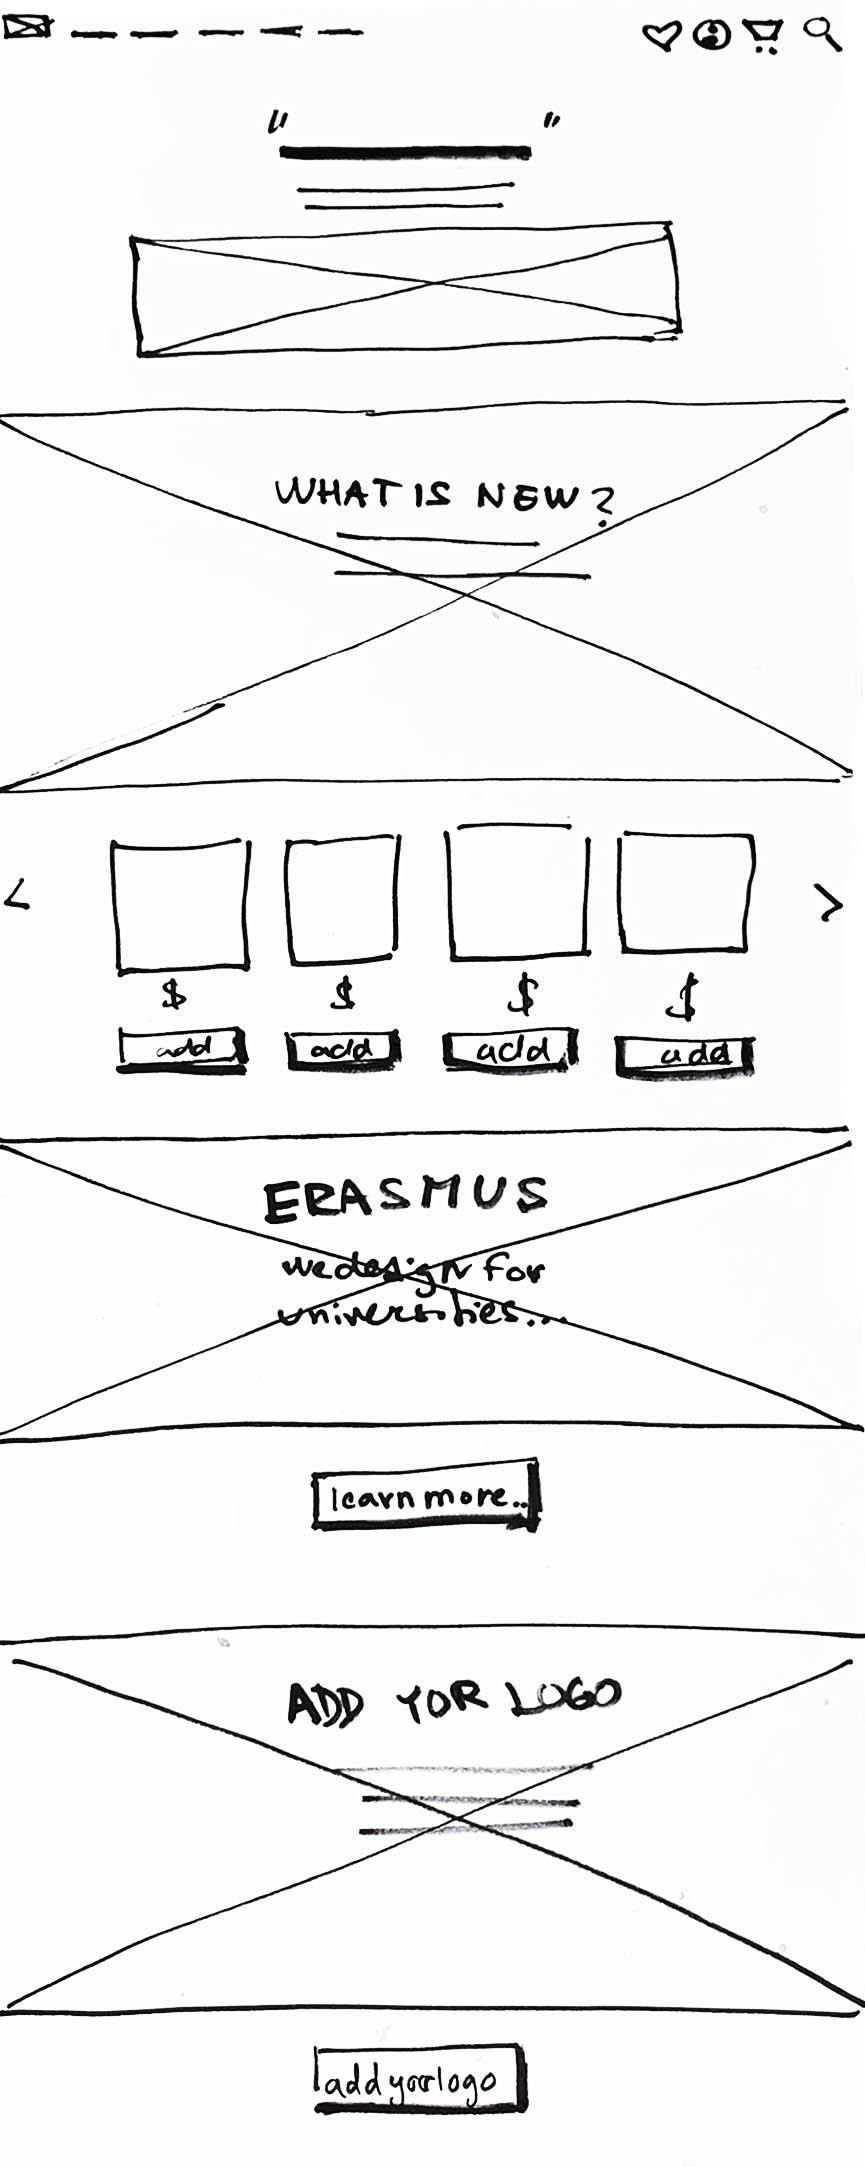 " "
WHAT IS NEW?
< >
$ $ $ $
add add add add
ERASMUS
we design for
universities...
learn more..
ADD YOR LOGO
add your logo